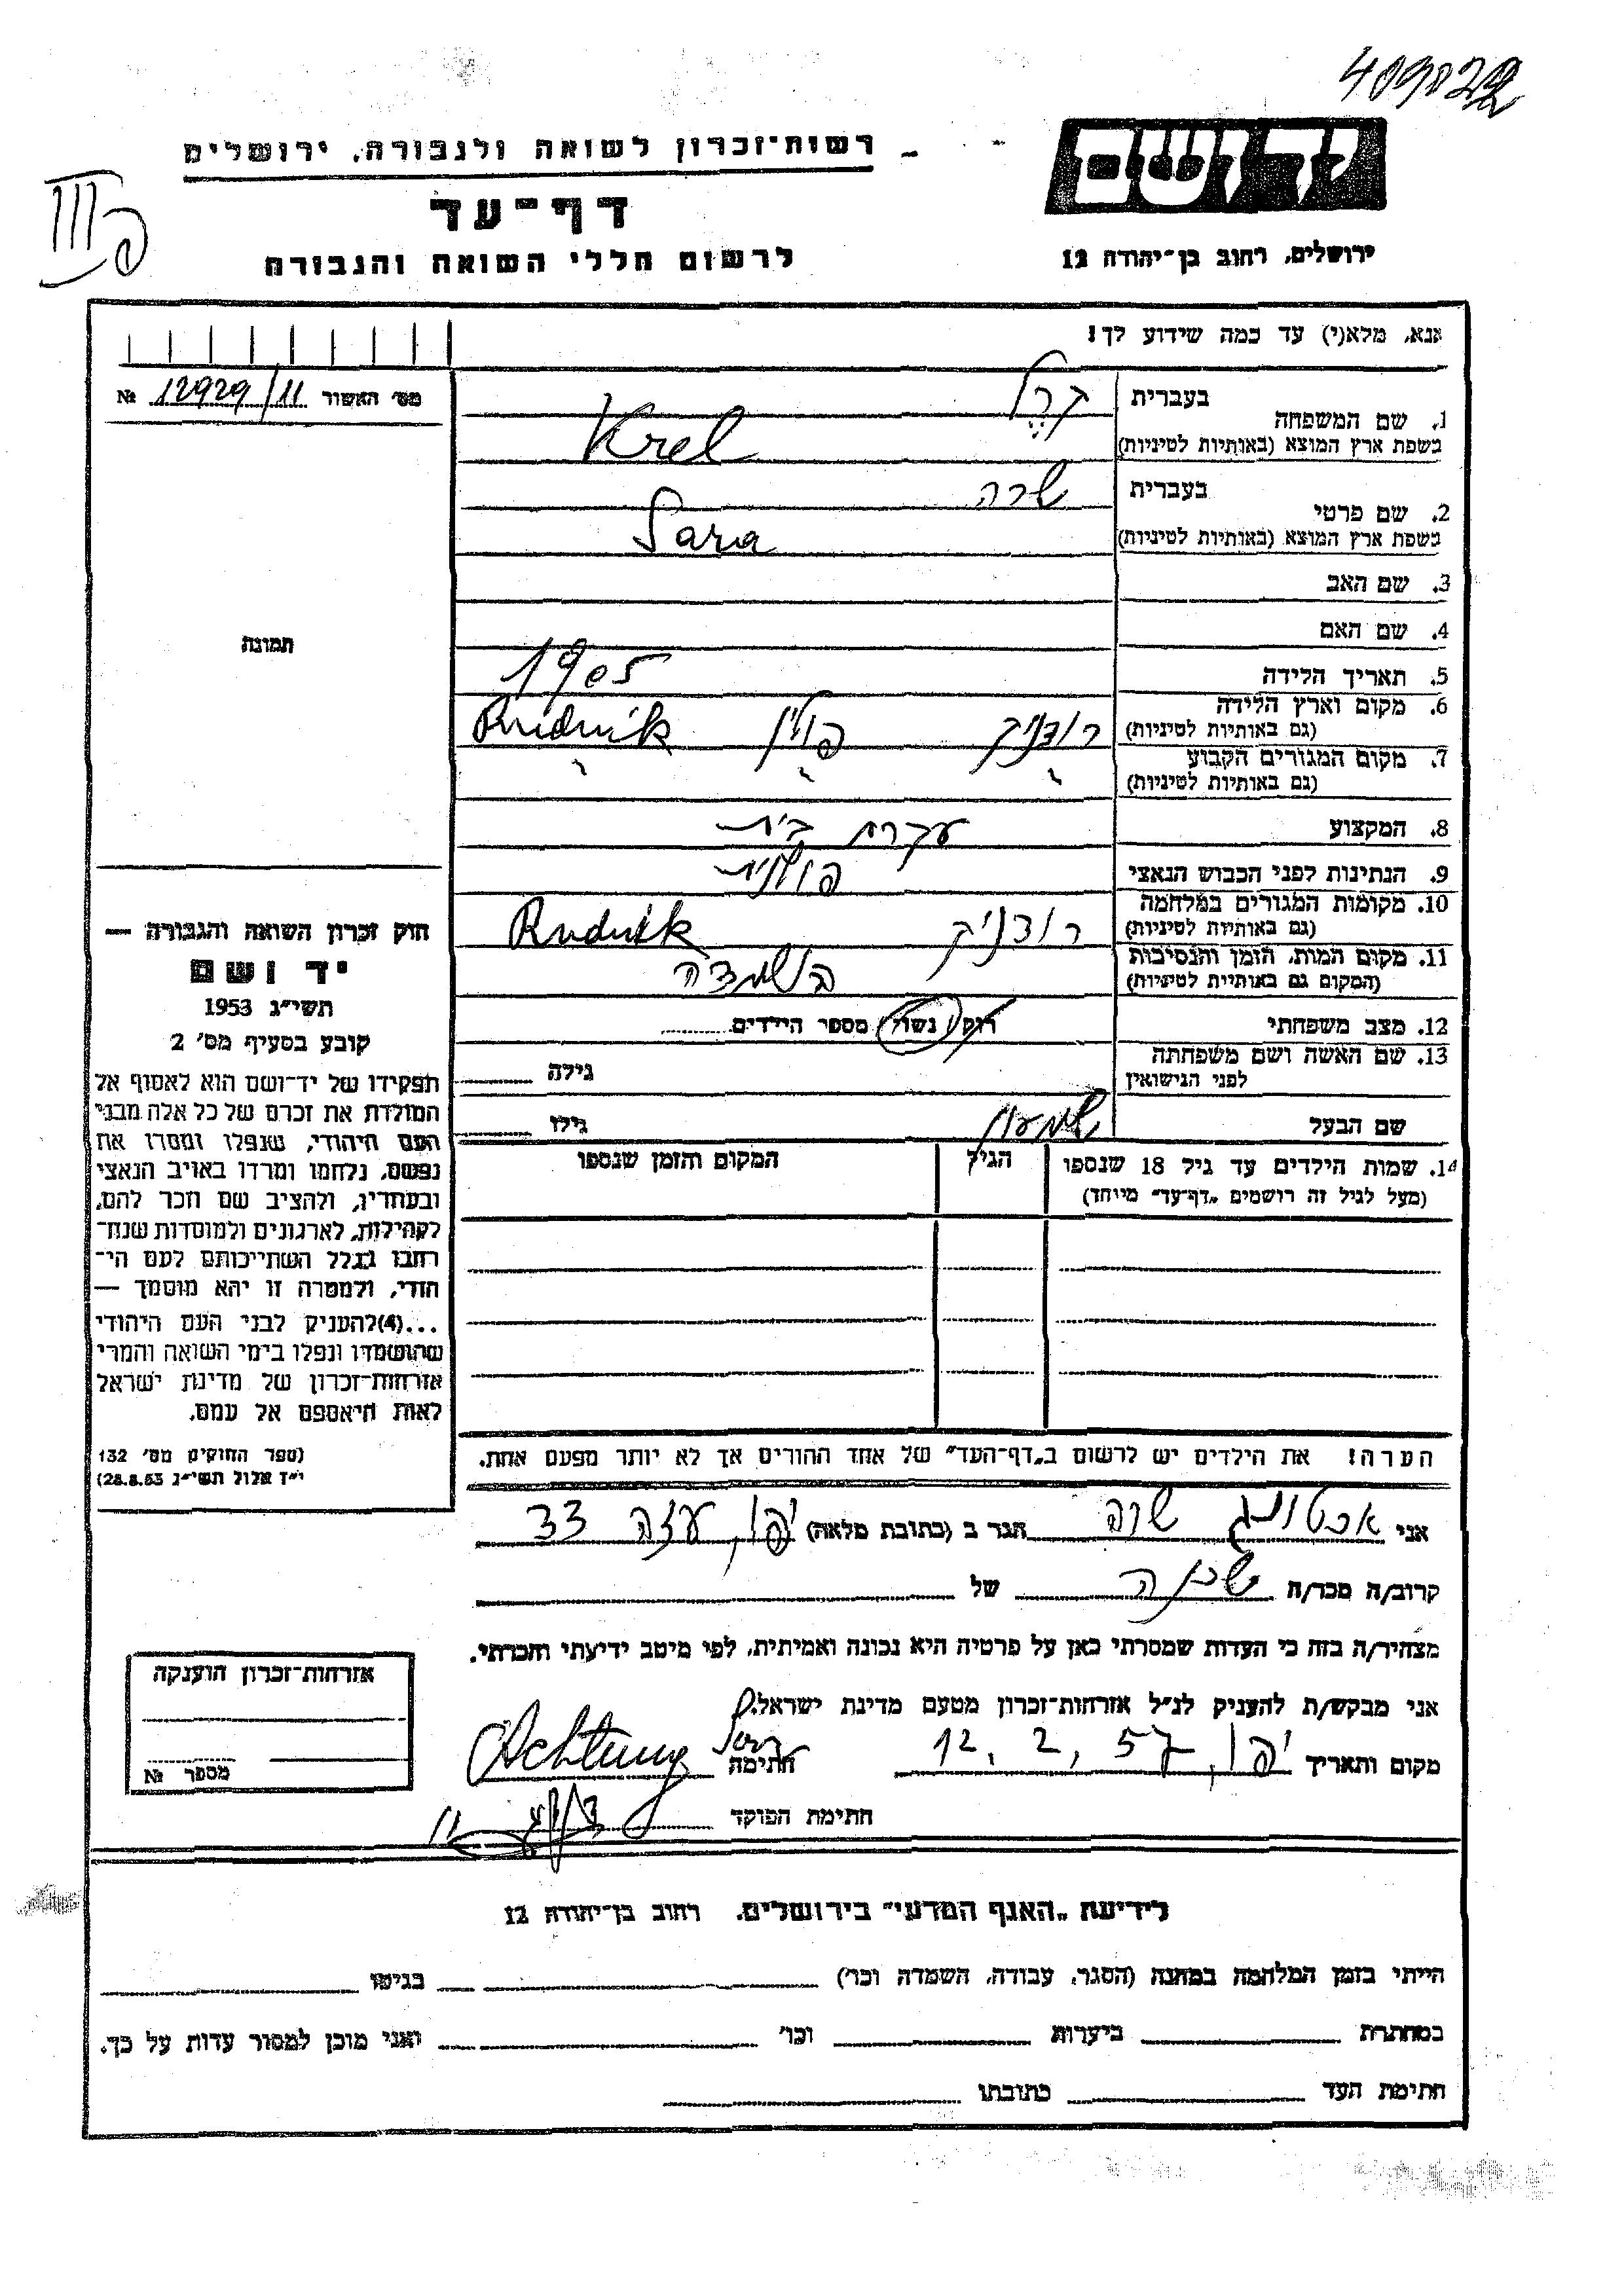 409022
יד ושם
ירושלים, רחוב בן־יהודה 12
רשות־זכרון לשואה ולגבורה, ירושלים
דף־עד
לרשום חללי השואה והגבורה
III פ
אנא, מלא(י) עד כמה שידוע לך!
מס׳ האשור 12929/11 №
1. שם המשפחה בעברית קרל
בשפת ארץ המוצא (באותיות לטיניות) Krel
2. שם פרטי בעברית שרה
בשפת ארץ המוצא (באותיות לטיניות) Sara
3. שם האב
4. שם האם
תמונה
5. תאריך הלידה 1905
6. מקום וארץ הלידה (גם באותיות לטיניות) רודניק פולין Rudnik
7. מקום המגורים הקבוע (גם באותיות לטיניות) " " "
8. המקצוע עקרת בית
9. הנתינות לפני הכבוש הנאצי פולנית
10. מקומות המגורים במלחמה (גם באותיות לטיניות) רודניק Rudnik
11. מקום המות, הזמן והנסיבות (המקום גם באותיות לטיניות) בשמדה
12. מצב משפחתי רווק/ נשוי/ מספר הילדים
13. שם האשה ושם משפחתה לפני הנישואין גילה
שם הבעל שמעון גילו
14. שמות הילדים עד גיל 18 שנספו הגיל המקום והזמן שנספו
(מעל לגיל זה רושמים „דף־עד” מיוחד)
הערה! את הילדים יש לרשום ב„דף־העד” של אחד ההורים אך לא יותר מפעם אחת.
חוק זכרון השואה והגבורה —
יד ושם
תשי״ג 1953
קובע בסעיף מס׳ 2
תפקידו של יד־ושם הוא לאסוף אל
המולדת את זכרם של כל אלה מבני
העם היהודי, שנפלו ומסרו את
נפשם, נלחמו ומרדו באויב הנאצי
ובעוזריו, ולהציב שם וזכר להם,
לקהילות, לארגונים ולמוסדות שנח־
רבו בגלל השתייכותם לעם הי־
הודי, ולמטרה זו יהא מוסמך —
...(4)להעניק לבני העם היהודי
שהושמדו ונפלו בימי השואה והמרי
אזרחות־זכרון של מדינת ישראל
לאות היאספם אל עמם.
(ספר החוקים מס׳ 132
י״ז אלול תשי״ג 28.8.53)
אני אכטונג שרה הגר ב (כתובת מלאה) יפו, עזה 33
קרוב/ה מכר/ה שכנה של
מצהיר/ה בזה כי העדות שמסרתי כאן על פרטיה היא נכונה ואמיתית, לפי מיטב ידיעתי והכרתי.
אני מבקש/ת להעניק לנ״ל אזרחות־זכרון מטעם מדינת ישראל.
מקום ותאריך יפו, 12.2.57 חתימה Achtung Sara
חתימת הפוקד
אזרחות־זכרון הוענקה
מספר №
לידיעת „האגף המדעי” בירושלים, רחוב בן־יהודה 12
הייתי בזמן המלחמה במחנה (הסגר, עבודה, השמדה וכו׳) בגיטו
במחתרת ביערות וכו׳ ואני מוכן למסור עדות על כך.
חתימת העד כתובתו